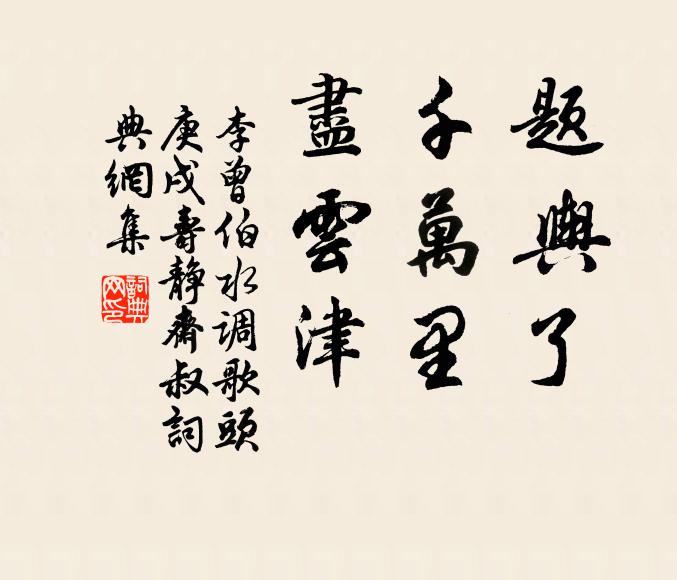 題輿了
千萬里
盡雲津
李曾伯水调歌頭
庚戌壽静齋叔詞
典網集
詞典网印